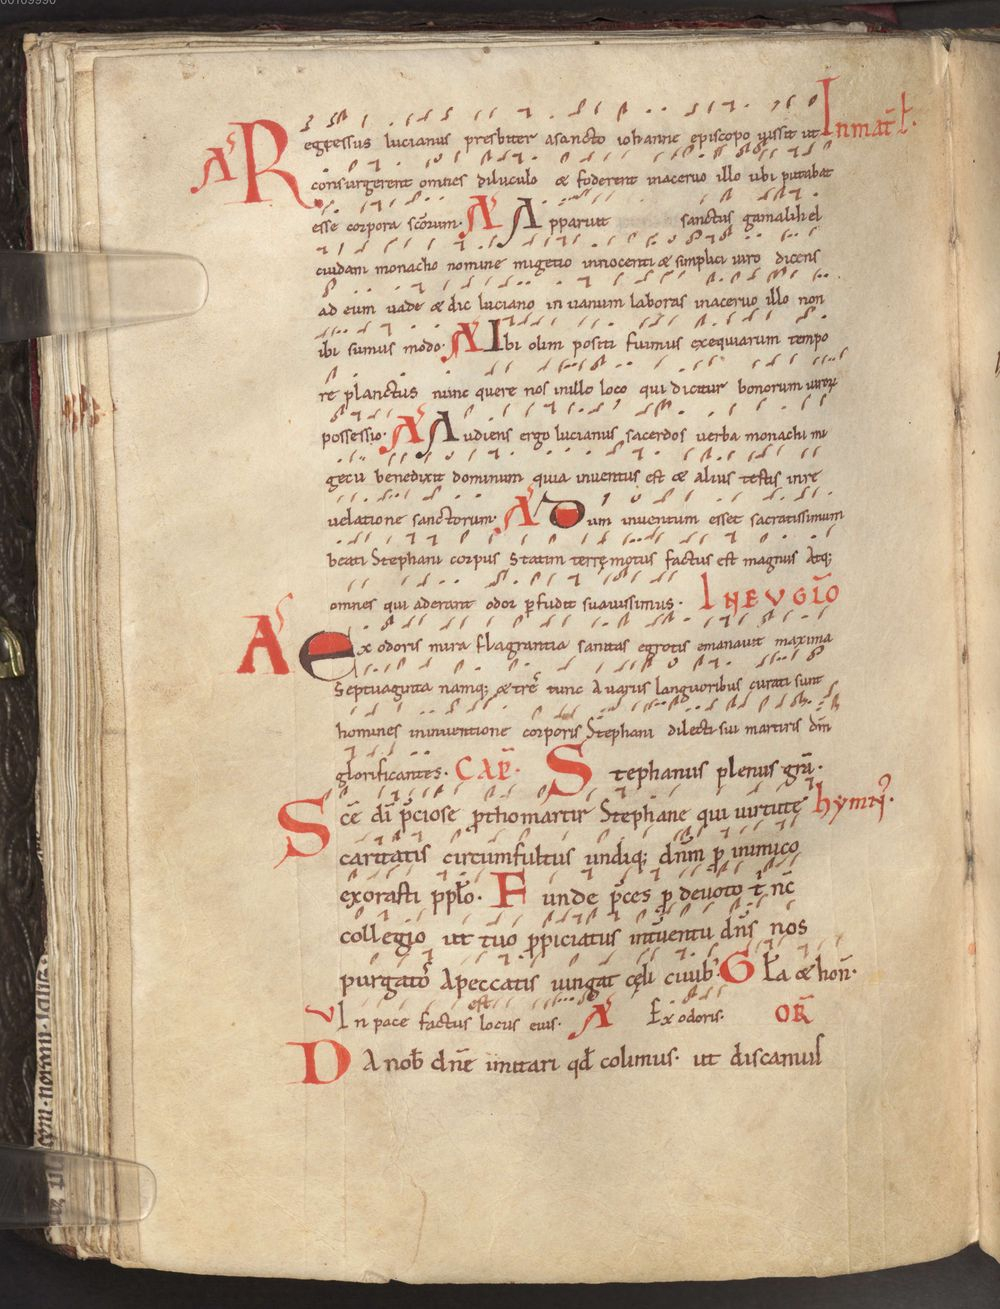 00109990
A Regressus lucianus presbiter asancto iohanne episcopo iussit ut In mat̄ ł.
consurgerent omnes diluculo & foderent inaceruo illo ubi putabat
esse corpora scōrum. A Apparuit sanctus gamalihel
cuidam monacho nomine migetio innocenti & simplici uiro dicens
ad eum uade & dic luciano in uanum laboras inaceruo illo non
ibi sumus modo. A Ibi olim positi fuimus exequiarum tempo
re planctus nunc quere nos inillo loco qui dicitur bonorum uirorū
possessio. A Audiens ergo lucianus sacerdos uerba monachi mi
gecii benedixit dominum quia inuentus est & alius testis inre
uelatione sanctorum. A Dum inuentum esset sacratissimum
beati Stephani corpus Statim terrę motus factus est magnus Atq;
omnes qui aderant odor p̄fudit suauissimus. IN EVGLĪO
A Ex odoris mira flagrantia sanitas egrotis emanauit maxima
Septuaginta namq; & trēs tunc A uariis languoribus curati sunt
homines ininuentione corporis Stephani dilecti sui martiris dn̄m
glorificantes. CAP̄. Stephanus plenus grā.
Sc̄e dī p̄ciose p̄thomartir Stephane qui uirtute hymn̄.
caritatis circumfultus undiq; dn̄m p̄ inimico
exorasti pplo. Funde p̄ces p̄ deuoto t̄ nc̄
collegio ut tuo p̄piciatus int̄uentu dn̄s nos
purgatō Apeccatis iungat cęli ciuib'. Gła & hon̄.
V In pace factus est locus eius. A Ex odoris. OR̄
DA nob̄ dn̄e imitari qd̄ colimus. ut discamus